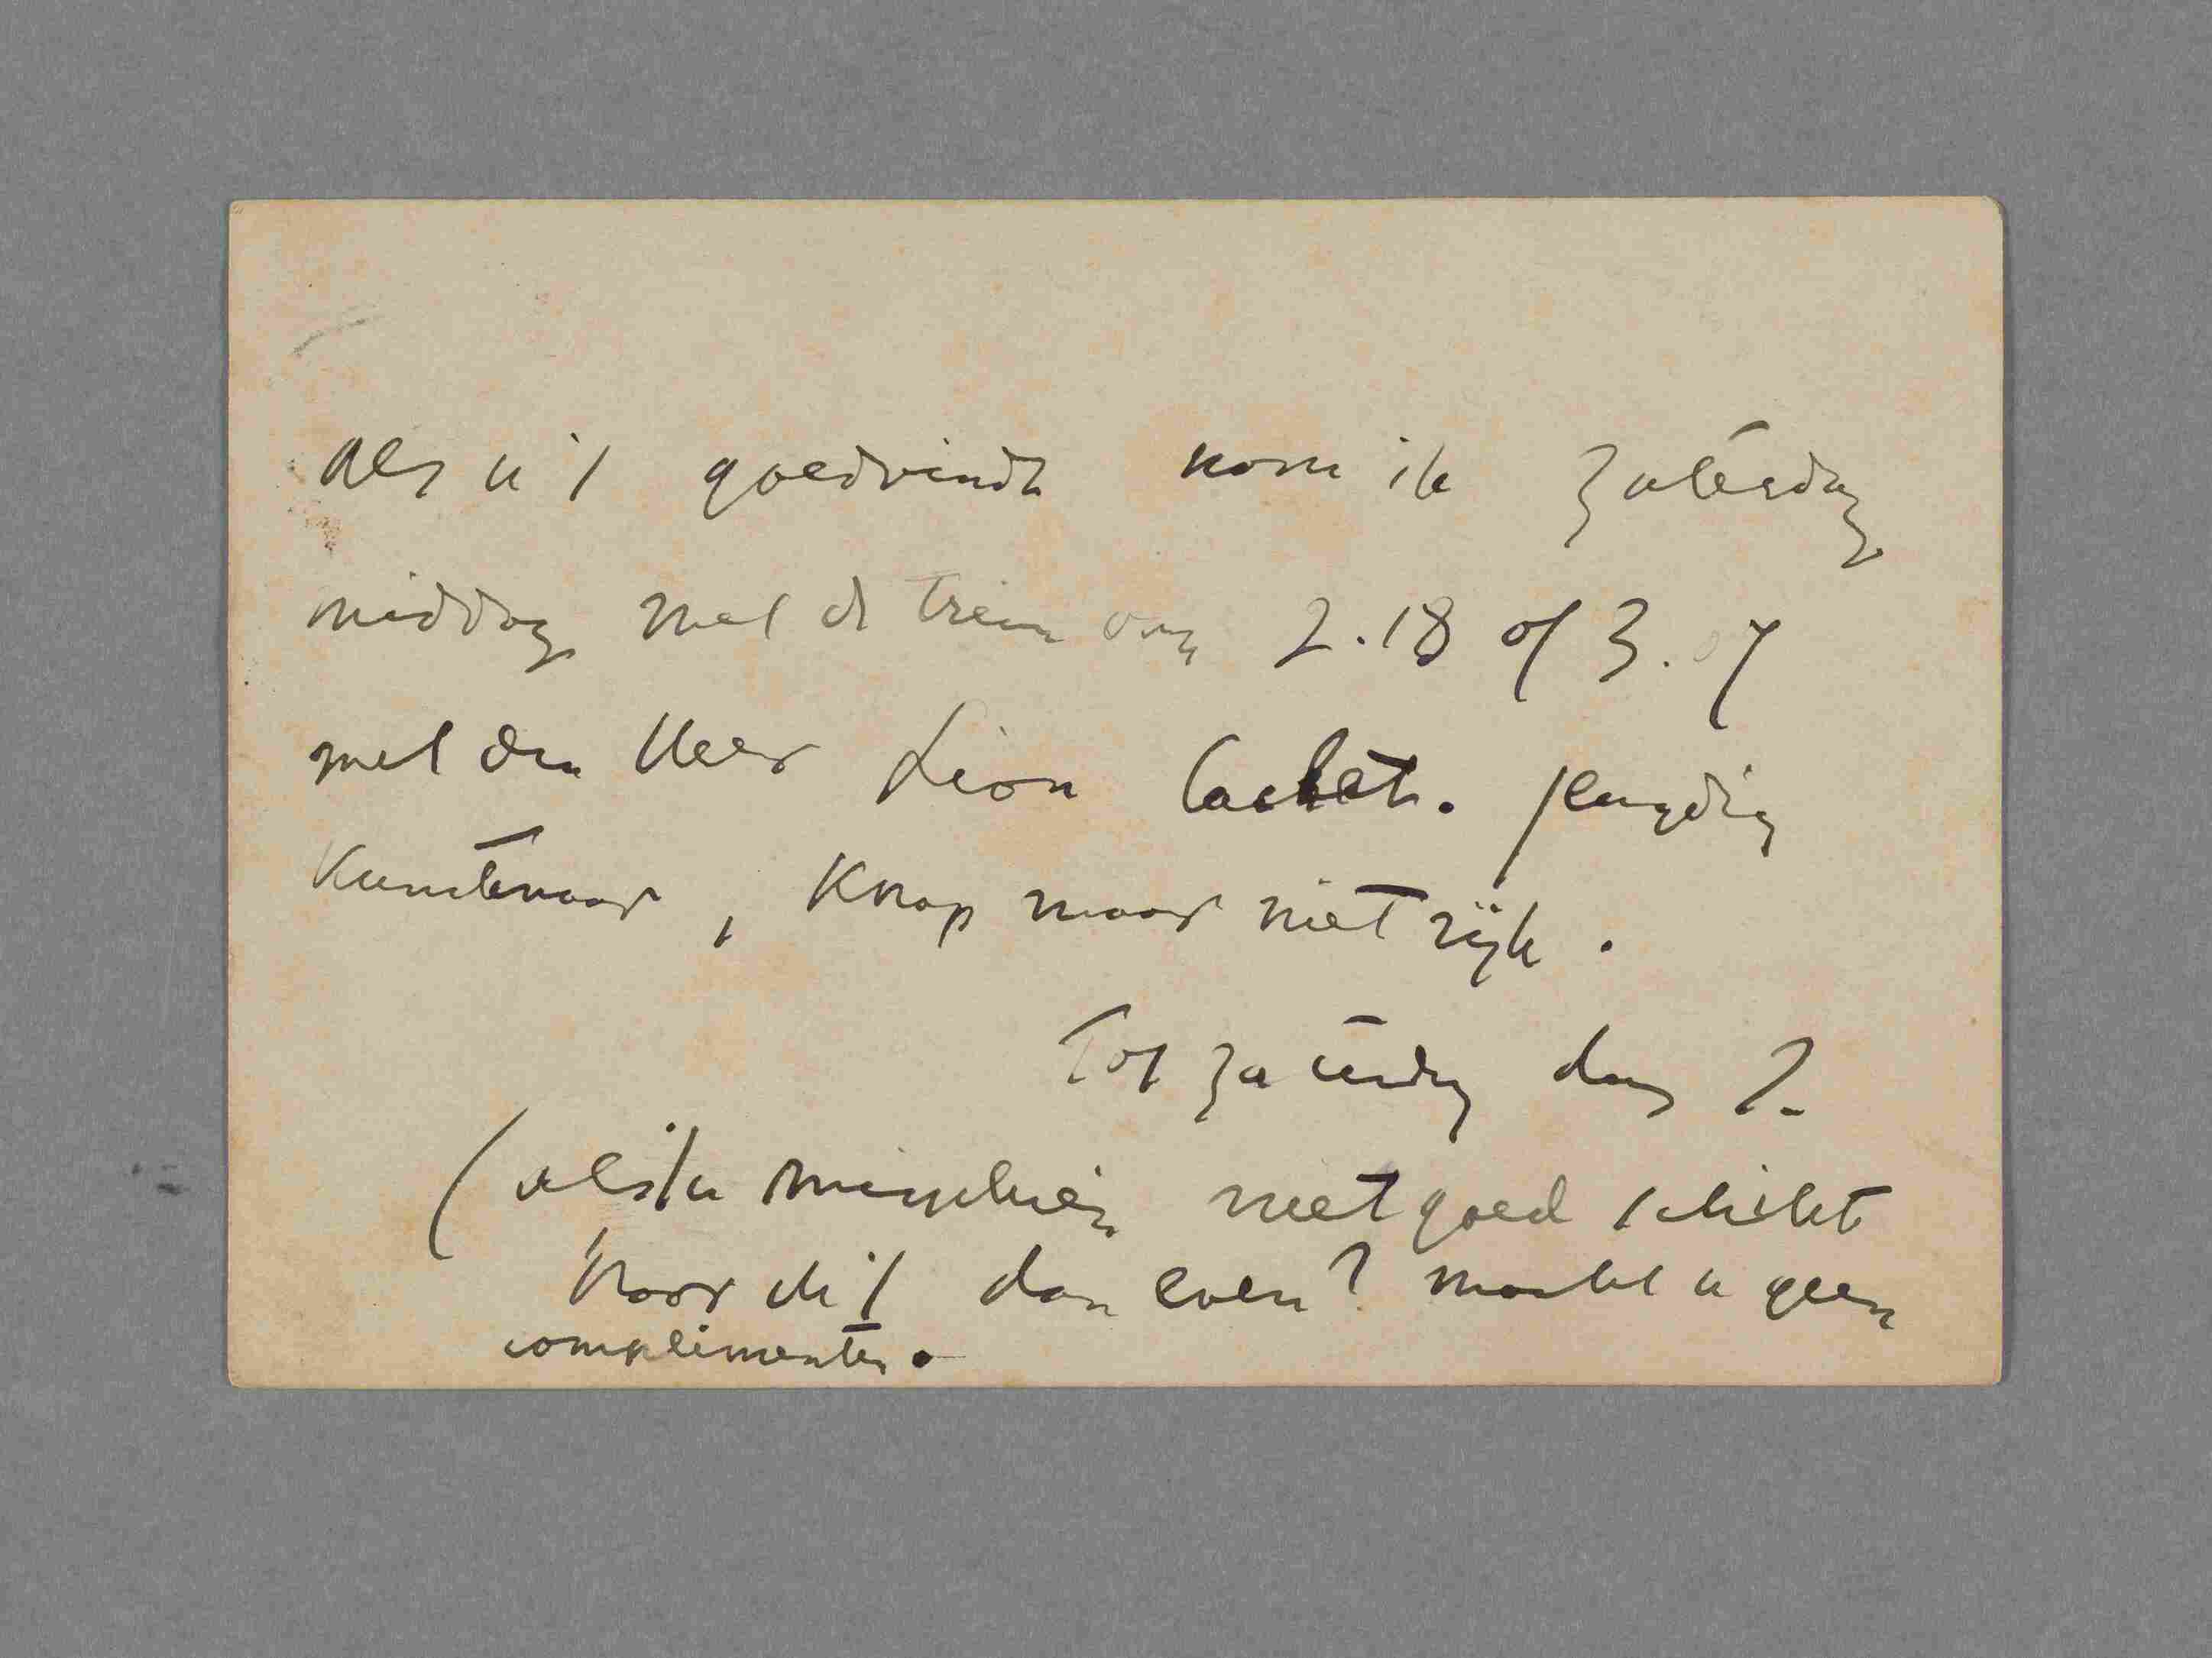 Als u 't goedvindt kom ik zaterdag
middag met de trein van 2.18 of 3.07
met den Heer Lion Cachet. jeugdig
Kunstenaar, Knap maar niet rijk.
Tot zaterdag dus?
(als 't u misschien niet goed schikt
hoor ik 't dan even? maakt u geen
complimenten.